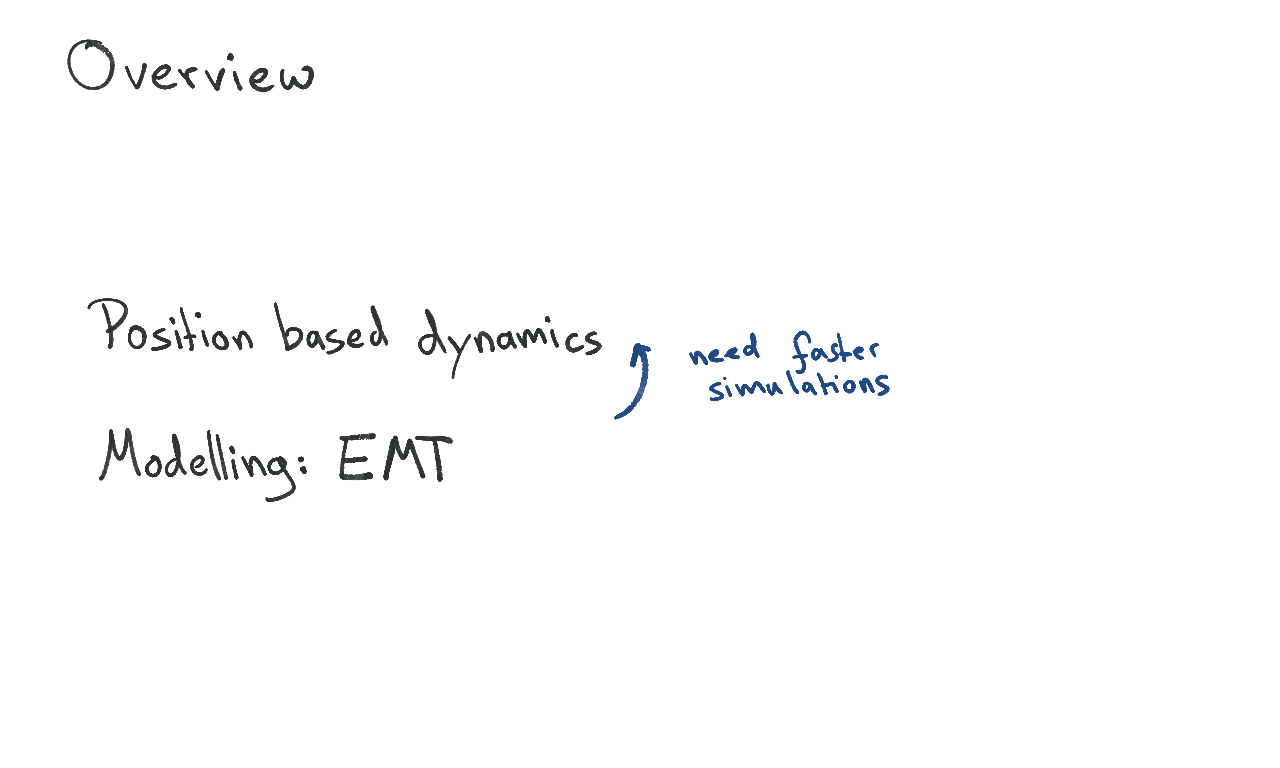 Overview
Position based dynamics
need faster
simulations
Modelling: EMT